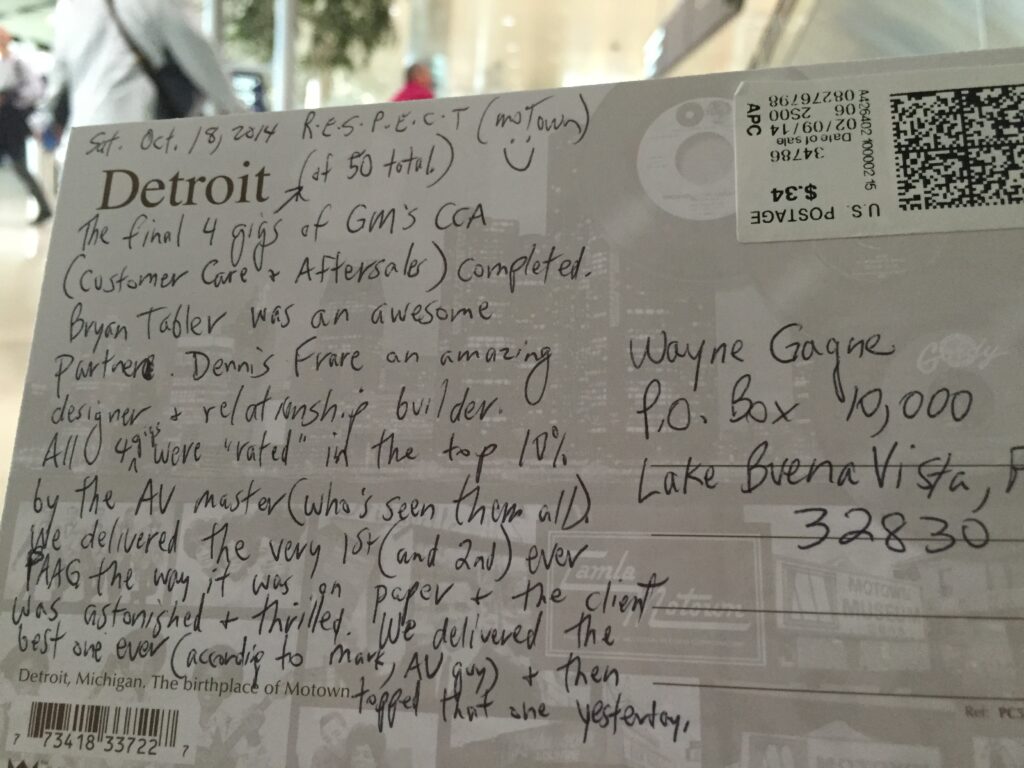 Sat. Oct. 18, 2014 R.E.S.P.E.C.T (moTown)
Detroit (of 50 total)
The final 4 gigs of GM's CCA
(Customer Care & Aftersales) completed.
Bryan Tabler was an awesome
partner. Dennis Frare an amazing
designer & relationship builder.
All 4 gigs were "rated" in the top 10%
by the AV master (who's seen them all).
We delivered the very 1st (and 2nd) ever
PAAG the way it was on paper + the client
was astonished + thrilled. We delivered the
best one ever (according to Mark, AV guy) + then
topped that one yesterday.
Detroit, Michigan. The birthplace of Motown.
7 73418 33722 7
U.S. POSTAGE
$.34
34786
Date of sale
02/09/14
06 2S00
08276798
APC
Wayne Gagne
P.O. Box 10,000
Lake Buena Vista, F
32830
Tamla
Motown
MOTOWN
MUSEUM
Gordy
Ref: PC3